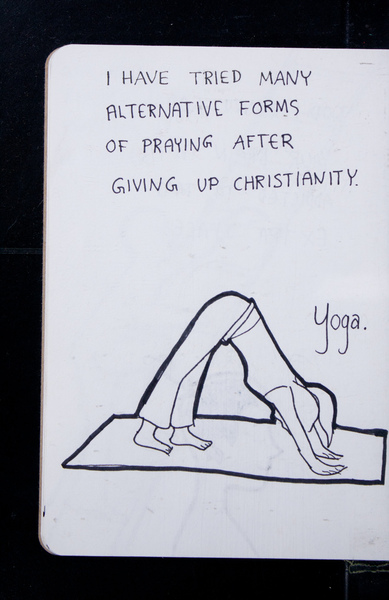 I HAVE TRIED MANY
ALTERNATIVE FORMS
OF PRAYING AFTER
GIVING UP CHRISTIANITY.
Yoga.